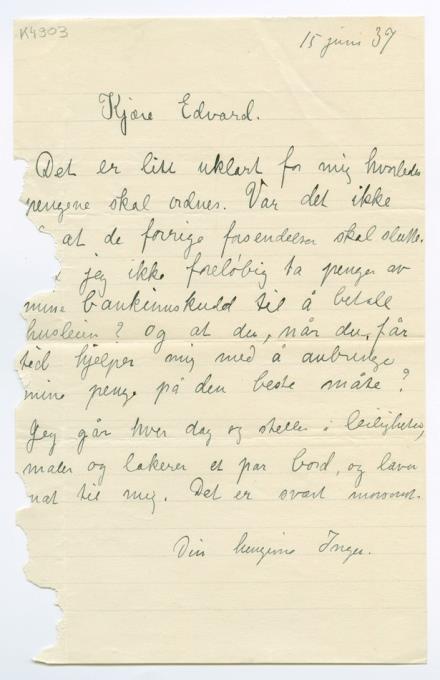 K4903
15 juni 37
Kjære Edvard.
Det er litt uklart for mig hvorledes
pengene skal ordnes. Var det ikke
at de forrige forsendelser skal slutte.
jeg ikke foreløbig ta penger av
mine bankinnskudd til å betale
husleien? og at du, når du får
tid hjelper mig med å anbringe
mine penge på den beste måte?
Jeg går hver dag og steller i leiligheten,
maler og lakerer et par bord, og laver
mat til mig. Det er svært morsomt.
Din hengivne Inger.